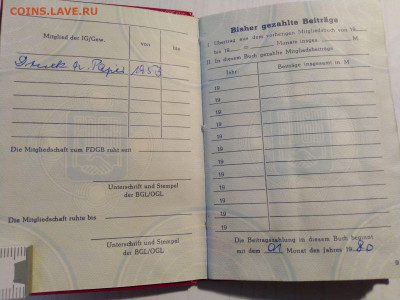 COINS.LAVE.RU
Mitglied der IG/Gew. von bis
Druck u. Papier 1953
Die Mitgliedschaft zum FDGB ruht seit
Unterschrift und Stempel
der BGL/OGL
Die Mitgliedschaft ruhte bis
Unterschrift und Stempel
der BGL/OGL
Bisher gezahlte Beiträge
I. Übertrag aus dem vorherigen Mitgliedsbuch von 19
bis 19 = Monate insges. M
II. In diesem Buch gezahlte Mitgliedsbeiträge
Jahr Beiträge insgesamt in M
19
19
19
19
19
19
19
19
19
19
19
Die Beitragszahlung in diesem Buch beginnt
mit dem 01 Monat des Jahres 1980
9